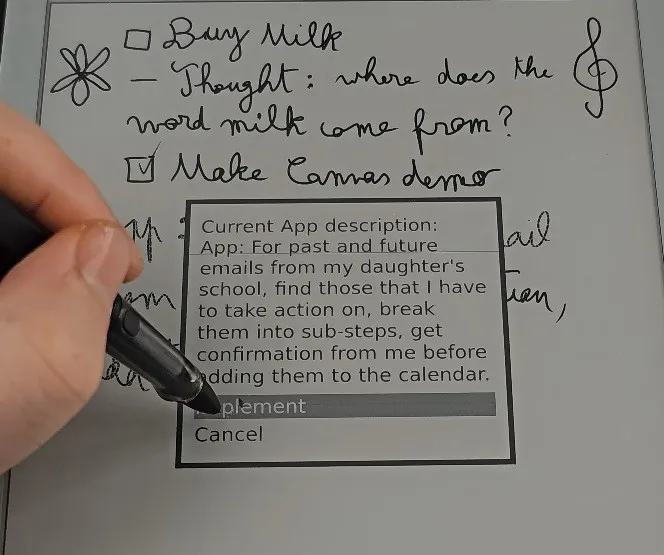 Buy Milk
– Thought: where does the
word milk come from?
Make Canvas demo
Current App description:
App: For past and future
emails from my daughter's
school, find those that I have
to take action on, break
them into sub-steps, get
confirmation from me before
adding them to the calendar.
Implement
Cancel